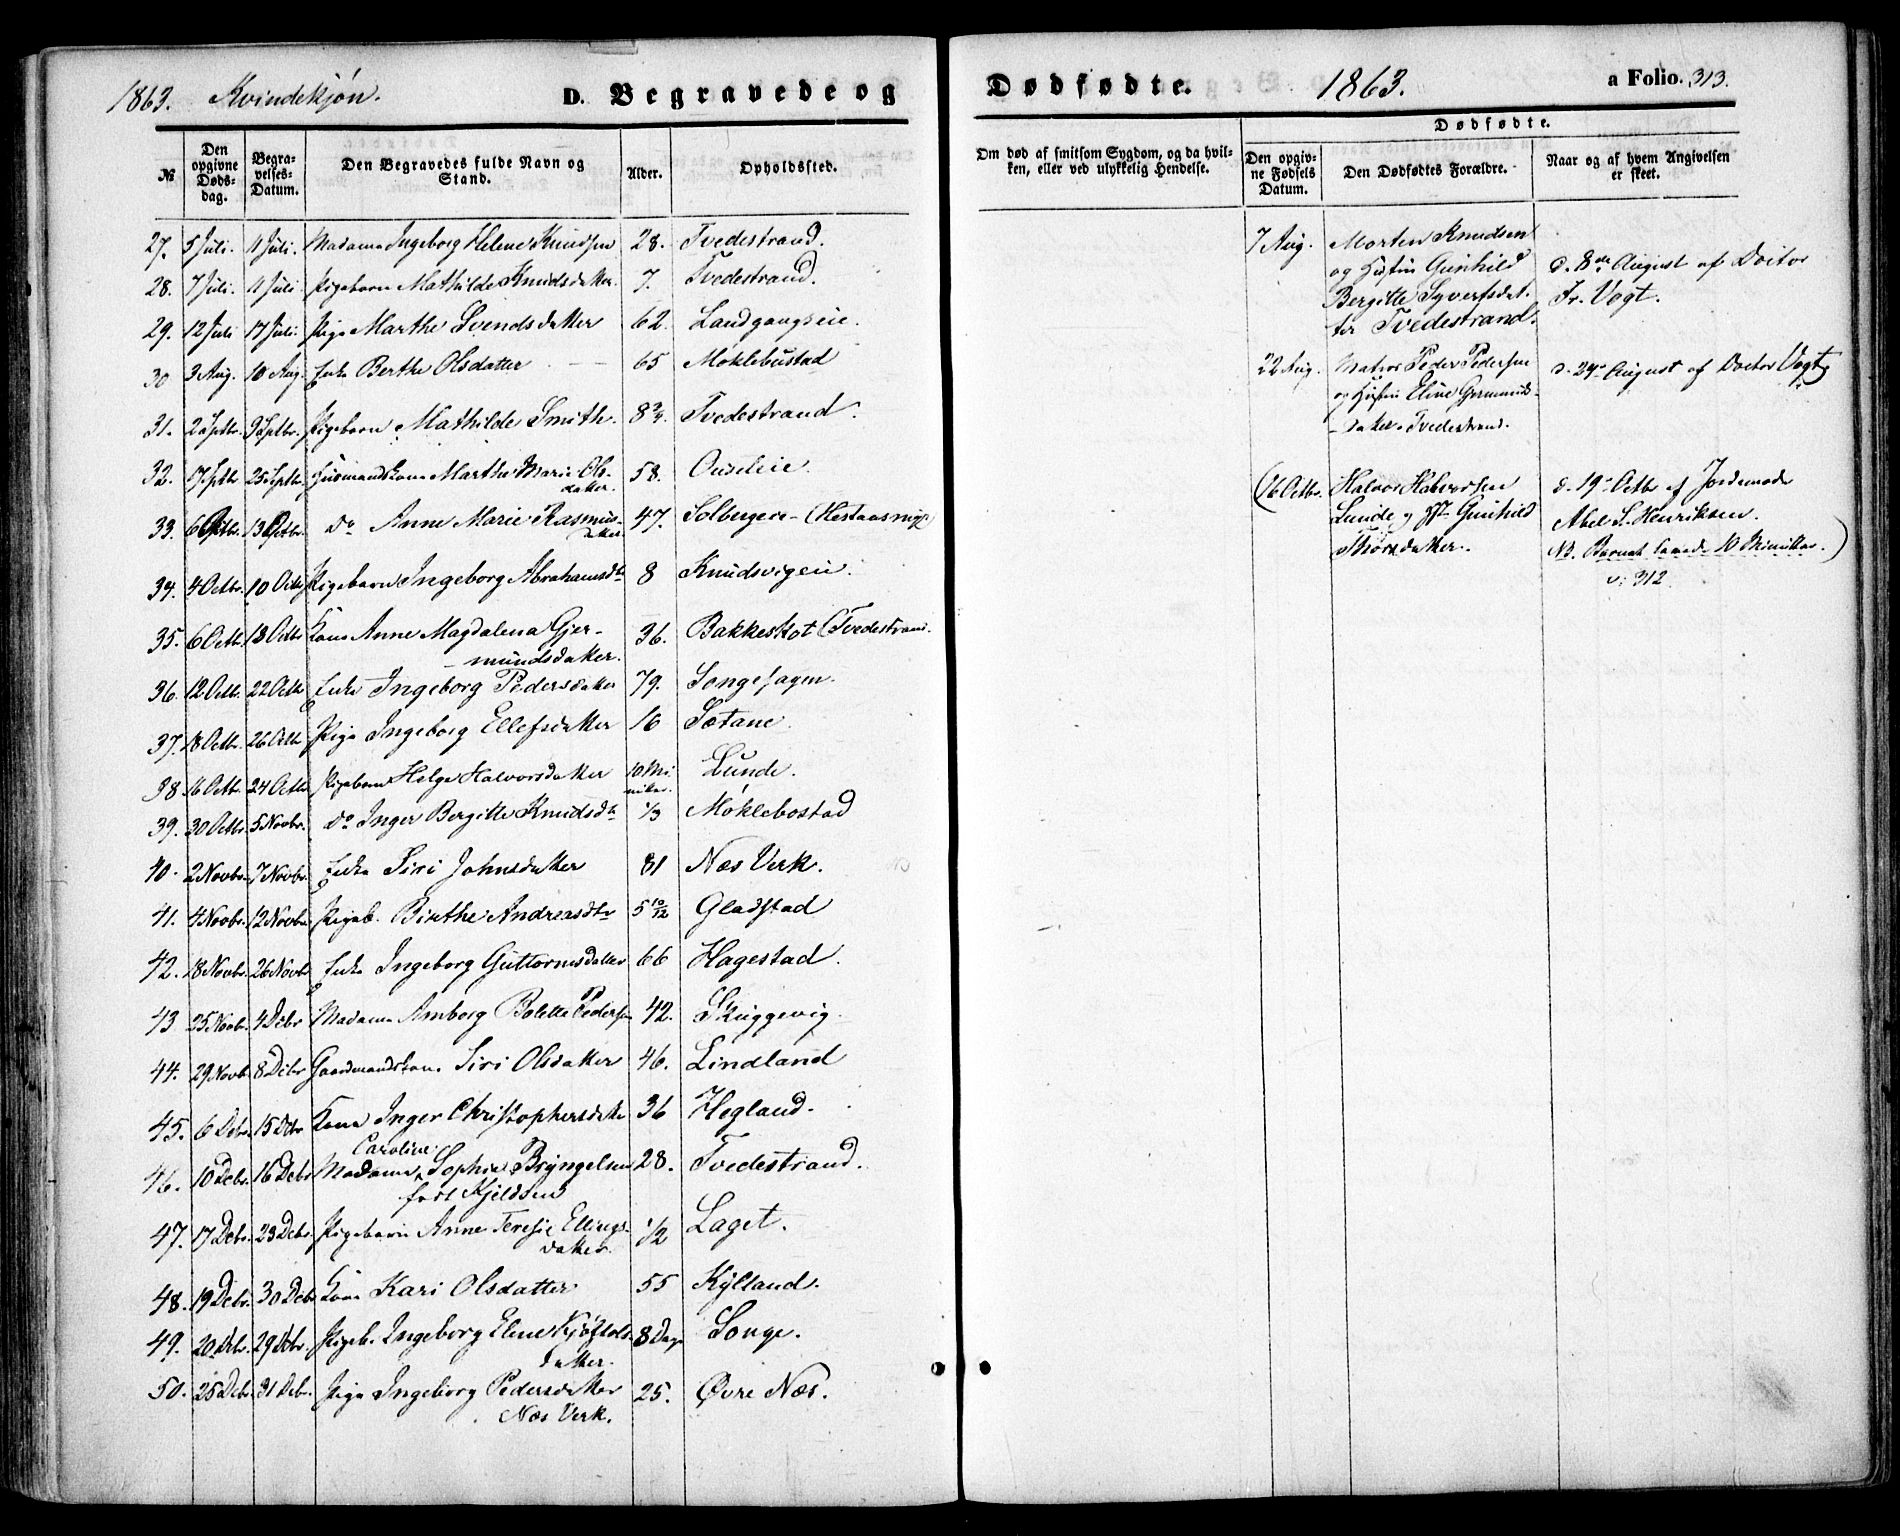 1863. Kvindekjøn. D. Begravede og
№ Den opgivne Døds-dag. Begra-velses-Datum. Den Begravedes fulde Navn og Stand. Alder. Opholdssted.
27. 5 Juli. 11 Juli. Madame Ingeborg Helene Knudsen 28. Tvedestrand.
28. 7 Juli. 11 Juli Pigebarn Mathilde Knudsdatter. 7. Tvedestrand.
29. 12 Juli 17 Juli. Pige Marthe Svendsdatter 62. Landgangseie.
30 3 Aug. 10 Aug. Enke Berthe Olsdatter 65 Møklebustad
31. 2 Septbr. 9 Septbr. Pigebarn Mathilde Smith. 8 3/4. Tvedestrand.
32. 17 Septbr 25 Septbr. Huusmandskone Marthe Marie Ols-
datter. 58.
33. 6 Octbr. 13 Octbr. do Anne Marie Rasmus-
datter 47. Solbergeie
34. 4 Octbr. 10 Octbr Pigebarn Ingeborg Abrahamsdtr 8 Knudsvigeie.
35. 6 Octbr. 12 Octbr Kone Anne Magdalena Gjer-
mundsdatter. 36. Bakkeskot (Tvedestrand.
36. 12 Octb. 22 Octb Enke Ingeborg Pedersdatter 79. Songehagen.
37. 18 Octbr. 26 Octb Pige Ingeborg Ellefsdatter 16 Sætane.
38 16 Octbr. 24 Octb Pigebarn Helge Halvorsdatter 10 Mi
nuter. Lunde.
39. 30 Octbr. 5 Novbr. do Inger Bergitte Knudsdtr 1/3 Møklebostad
40. 2 Novbr. 7 Novbr. Enke Siri Johnsdatter 81 Næs Verk.
41. 4 Novbr. 12 Novbr. Pigeb. Birthe Andreasdtr 5 10/12 Gladstad
42. 18 Novbr. 26 Novbr Enke Ingeborg Guttormsdatter 66 Hagestad.
43 25 Novbr. 4 Debr Madame Amborg Bolette Pedersen 42. Skuggevig.
44. 29 Novb. 8 Debr Gaardmandskone Siri Olsdatter 46. Lindland
45. 6 Debr. 15 Debr Kone Inger Christophersdatter 36 Hegland.
Caroline
46. 10 Debr. 16 Debr Madame Sophie Bryngelsen 28. Tvedestrand.
født Kjeldsen
47. 17 Debr. 23 Debr. Pigebarn Anne Teresie Ellings-
datter. 1/2 Laget.
48. 19 Debr. 30 Debr Kone Kari Olsdatter 55 Kylland.
49. 20 Debr. 29 Debr. Pigeb. Ingeborg Eline
datter. 8 Dage Songe.
50. 25 Debr 31 Debr. Pige Ingeborg Pedersdatter 25. Øvre Næs.
Næs Verk.
Dødfødte. 1863. a Folio. 313.
Om død af smitsom Sygdom, og da hvil-ken, eller ved ulykkelig Hendelse.
Dødfødte.
Den opgiv-ne Fødsels Datum. Den Dødfødtes Forældre. Naar og af hvem Angivelsen er skeet.
7 Aug. Morten Knudsen
og Hustru Gunhild
Bergitte Syvertsdat-
ter Tvedestrand.
d. 8de August af Doctor
Fr. Vogt.
22 Aug. Matros Peder Pedersen
og Hustru Eline Germunds-
datter Tvedestrand.
d. 24. August af Doctor Vogt,
(16 Octbr. Halvor Halvorsen
Lunde og H. Gunhild
datter.
d. 19. Octbr af Jordemoder
Abel S. Henriksen.
NB. Barnet levede 10 Minutter.)
v: 312.